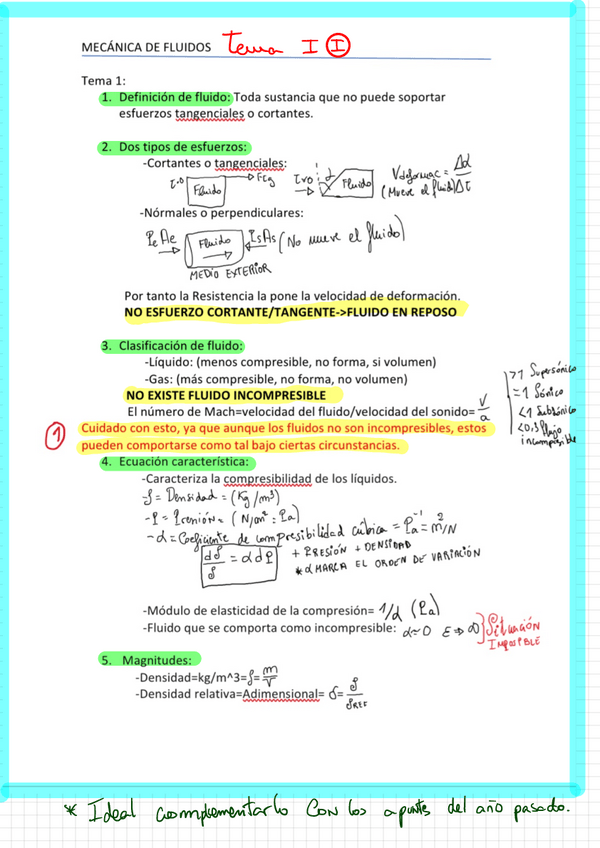 MECÁNICA DE FLUIDOS Tema I I
Tema 1:
1. Definición de fluido: Toda sustancia que no puede soportar
esfuerzos tangenciales o cortantes.
2. Dos tipos de esfuerzos:
-Cortantes o tangenciales:
τ=0 Fluido → Ftg τ≠0 α Fluido Vdeformac = Δα/Δt
(Mueve el fluido)
-Nórmales o perpendiculares:
PeAe Fluido PsAs (No mueve el fluido)
MEDIO EXTERIOR
Por tanto la Resistencia la pone la velocidad de deformación.
NO ESFUERZO CORTANTE/TANGENTE->FLUIDO EN REPOSO
3. Clasificación de fluido:
-Líquido: (menos compresible, no forma, si volumen)
-Gas: (más compresible, no forma, no volumen)
NO EXISTE FLUIDO INCOMPRESIBLE
El número de Mach=velocidad del fluido/velocidad del sonido= V/a
>1 Supersónico
=1 Sónico
<1 Subsónico
<0,3 flujo
incompresible
1 Cuidado con esto, ya que aunque los fluidos no son incompresibles, estos
pueden comportarse como tal bajo ciertas circunstancias.
4. Ecuación característica:
-Caracteriza la compresibilidad de los líquidos.
-ρ = Densidad = (Kg/m³)
-P = Presión = (N/m² : Pa)
-α = Coeficiente de compresibilidad cúbica = Pa⁻¹ = m²/N
dρ/ρ = α dP + PRESIÓN + DENSIDAD
* α MARCA EL ORDEN DE VARIACIÓN
-Módulo de elasticidad de la compresión= 1/α (Pa)
-Fluido que se comporta como incompresible: α≃0 E⇒∞ } Situación
IMPOSIBLE
5. Magnitudes:
-Densidad=kg/m^3=ρ= m/V
-Densidad relativa=Adimensional= δ= ρ/ρREF
* Ideal complementarlo con los apuntes del año pasado.